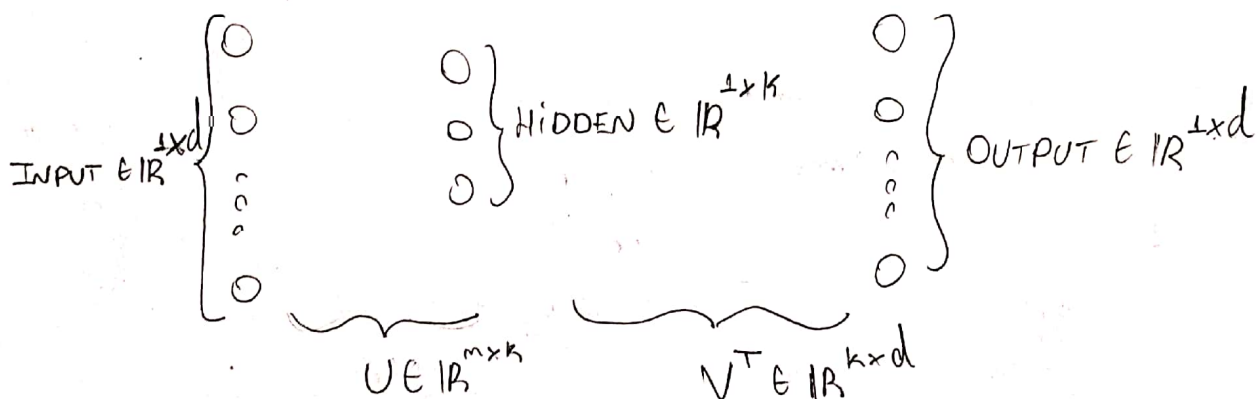 INPUT ∈ ℝ^{1×d}
HiDDEN ∈ ℝ^{1×K}
OUTPUT ∈ ℝ^{1×d}
U ∈ ℝ^{m×k}
V^T ∈ ℝ^{k×d}